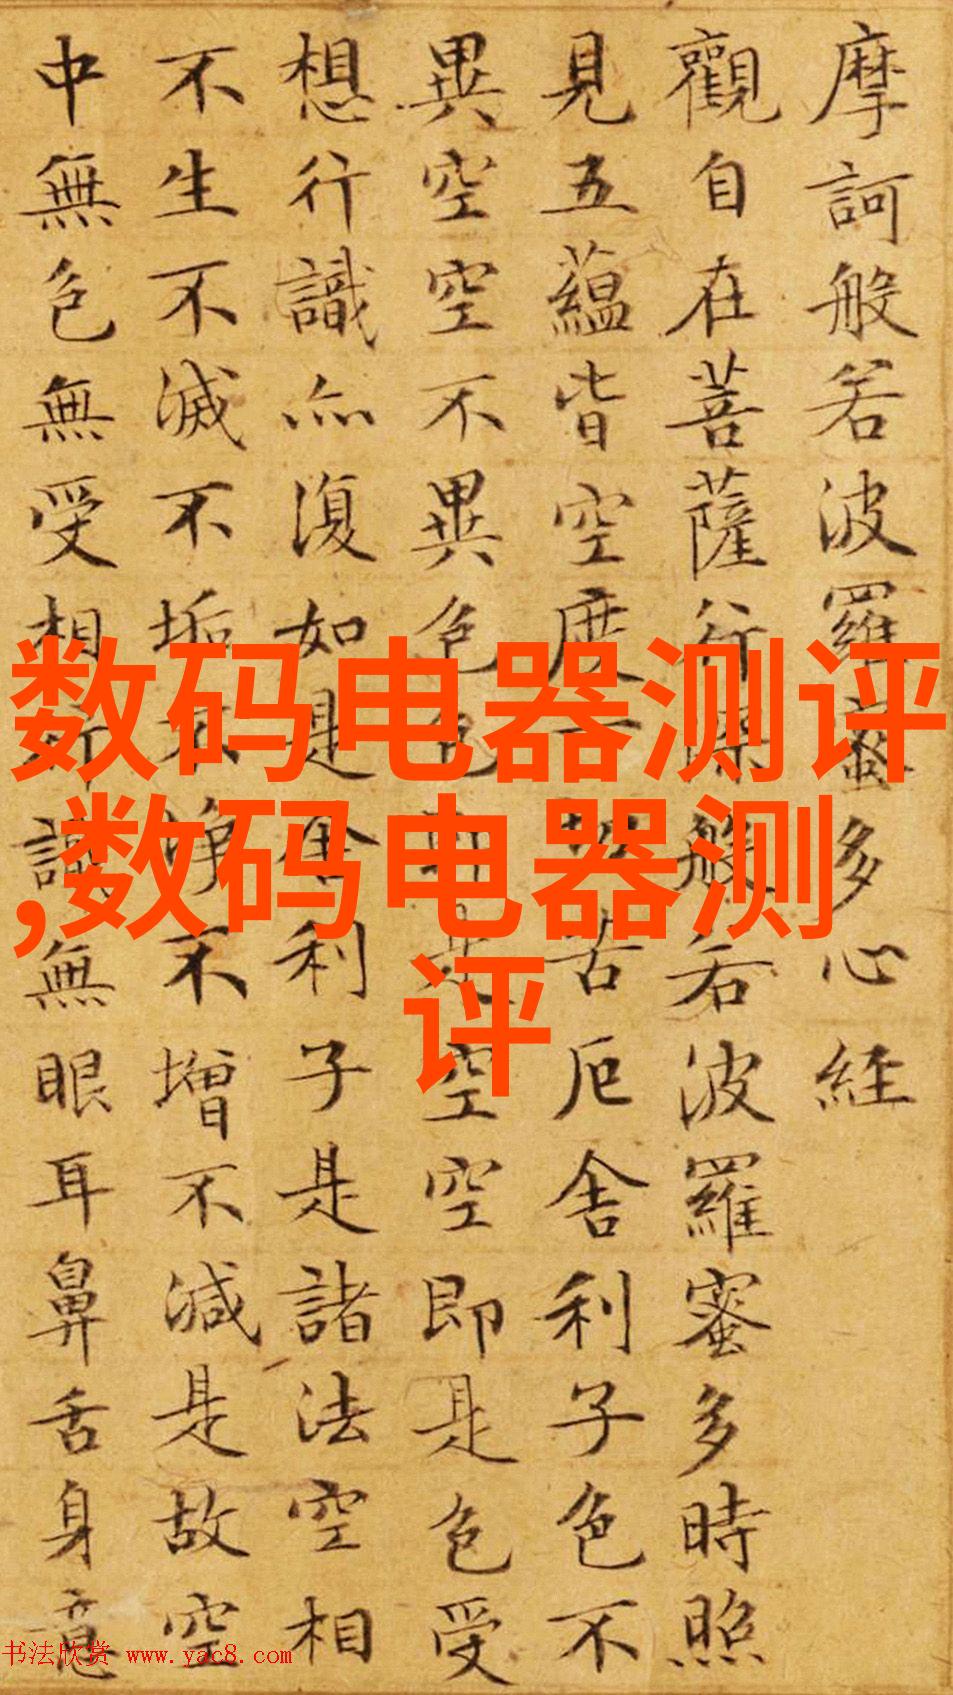 摩訶般若波羅蜜多心経
觀自在菩薩行深般若波羅蜜多時照
見五蘊皆空度一切苦厄舍利子色不
異空空不異色色即是空空即是色受
想行識亦復如是舍利子是諸法空相
不生不滅不垢不净不增不減是故空
中無色無受想行識無眼耳鼻舌身意
数码电器测评
,数码电器测
评
书法欣赏 www.yac8.com